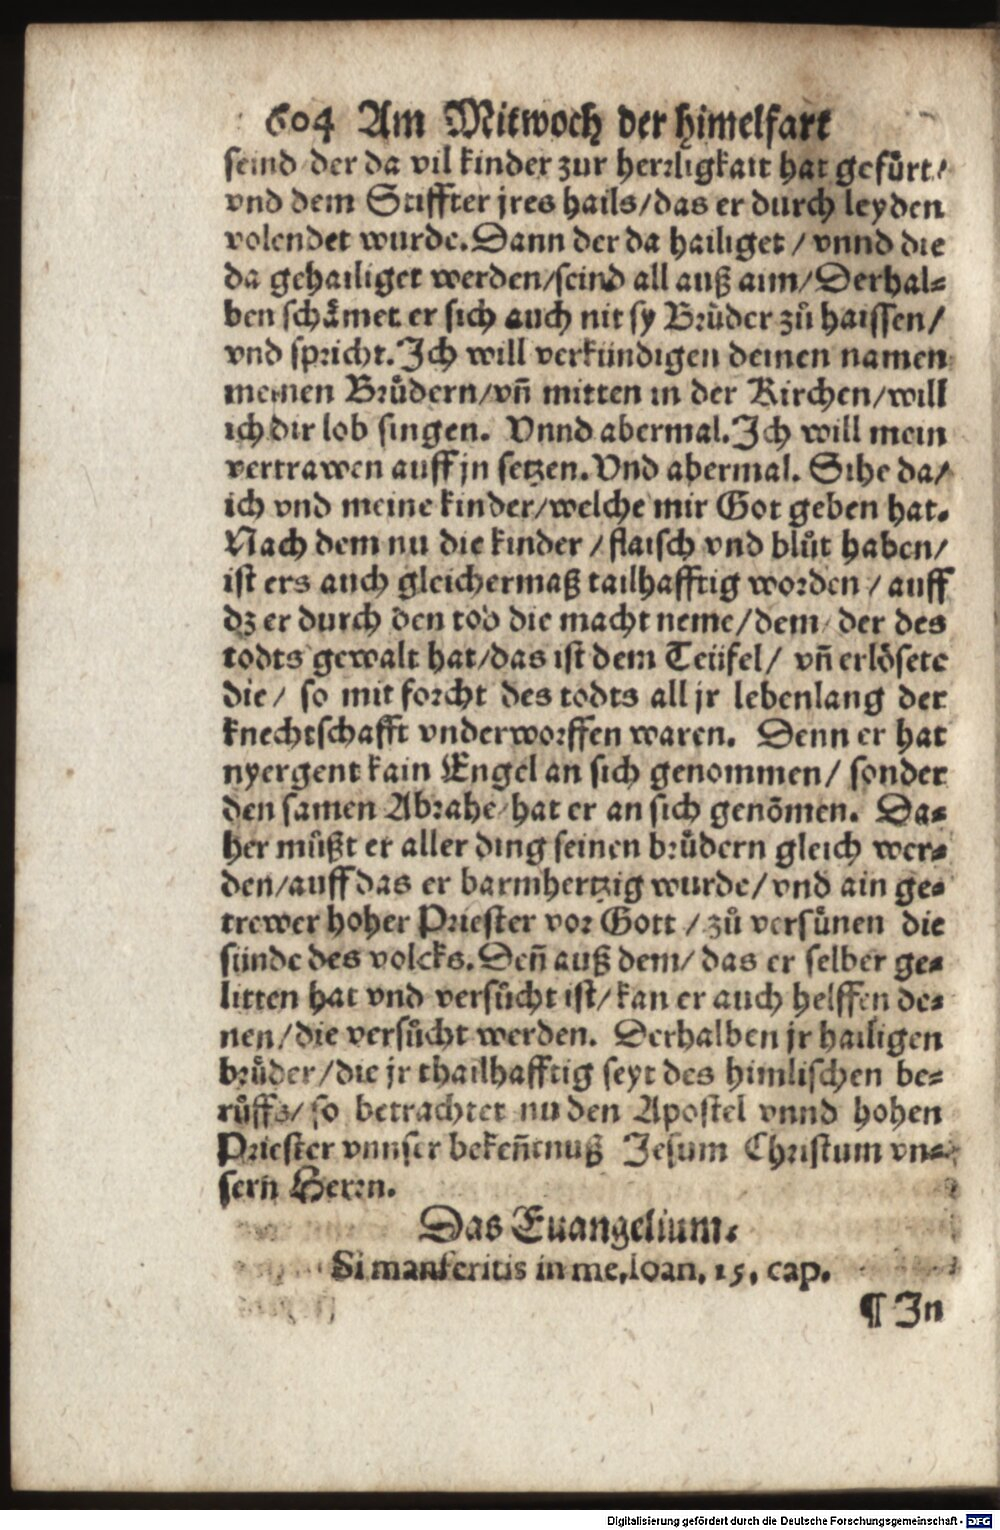 604 Am Mitwoch der himelfart
seind der da vil kinder zur herrligkait hat gefuͤrt/
vnd dem Stiffter jres hails/das er durch leyden
volendet wurde. Dann der da hailiget / vnnd die
da gehailiget werden/seind all auß aim/Derhal-
ben schaͤmet er sich auch nit sy Bruͤder zuͦ haissen/
vnd spricht. Ich will verkündigen deinen namen
meinen Bruͤdern/vñ mitten in der Kirchen/will
ich dir lob singen. Vnnd abermal. Ich will mein
vertrawen auff jn setzen. Vnd abermal. Sihe da/
ich vnd meine kinder/welche mir Got geben hat.
Nach dem nu die kinder / flaisch vnd bluͦt haben/
ist ers auch gleichermaß tailhafftig worden / auff
dz er durch den tod die macht neme/dem/ der des
todts gewalt hat/das ist dem Teüfel/ vñ erloͤsete
die/ so mit forcht des todts all jr lebenlang der
knechtschafft vnderworffen waren. Denn er hat
nyergent kain Engel an sich genommen/ sonder
den samen Abrahe/hat er an sich genõmen. Da-
her muͤßt er aller ding seinen bruͤdern gleich wer-
den/auff das er barmhertzig wurde/vnd ain ge-
trewer hoher Priester vor Gott / zuͦ versuͤnen die
sünde des volcks. Deñ auß dem/ das er selber ge-
litten hat vnd versuͦcht ist/kan er auch helffen de-
nen/die versuͦcht werden. Derhalben jr hailigen
bruͤder/die jr thailhafftig seyt des himlischen be-
ruͤffs/so betrachtet nu den Apostel vnnd hohen
Priester vnnser bekeñtnuß Jesum Christum vn-
sern Herrn.
Das Euangelium.
Si manseritis in me, Ioan. 15. cap.
¶ In
Digitalisierung gefördert durch die Deutsche Forschungsgemeinschaft - DFG